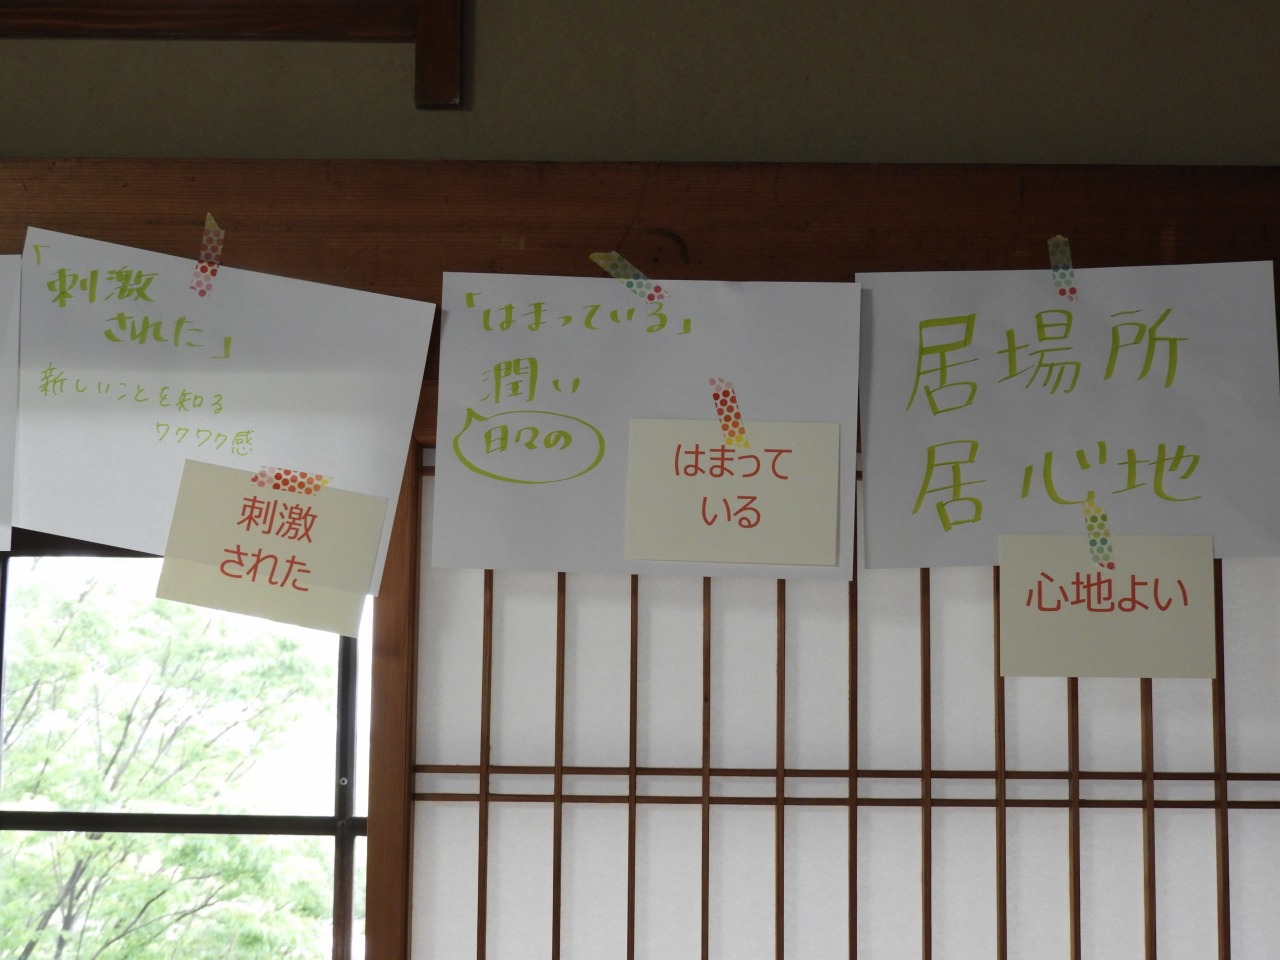 「刺激
された」
新しいことを知る
ワクワク感
刺激
された
「はまっている」
潤い
日々の
はまって
いる
居場所
居心地
心地よい